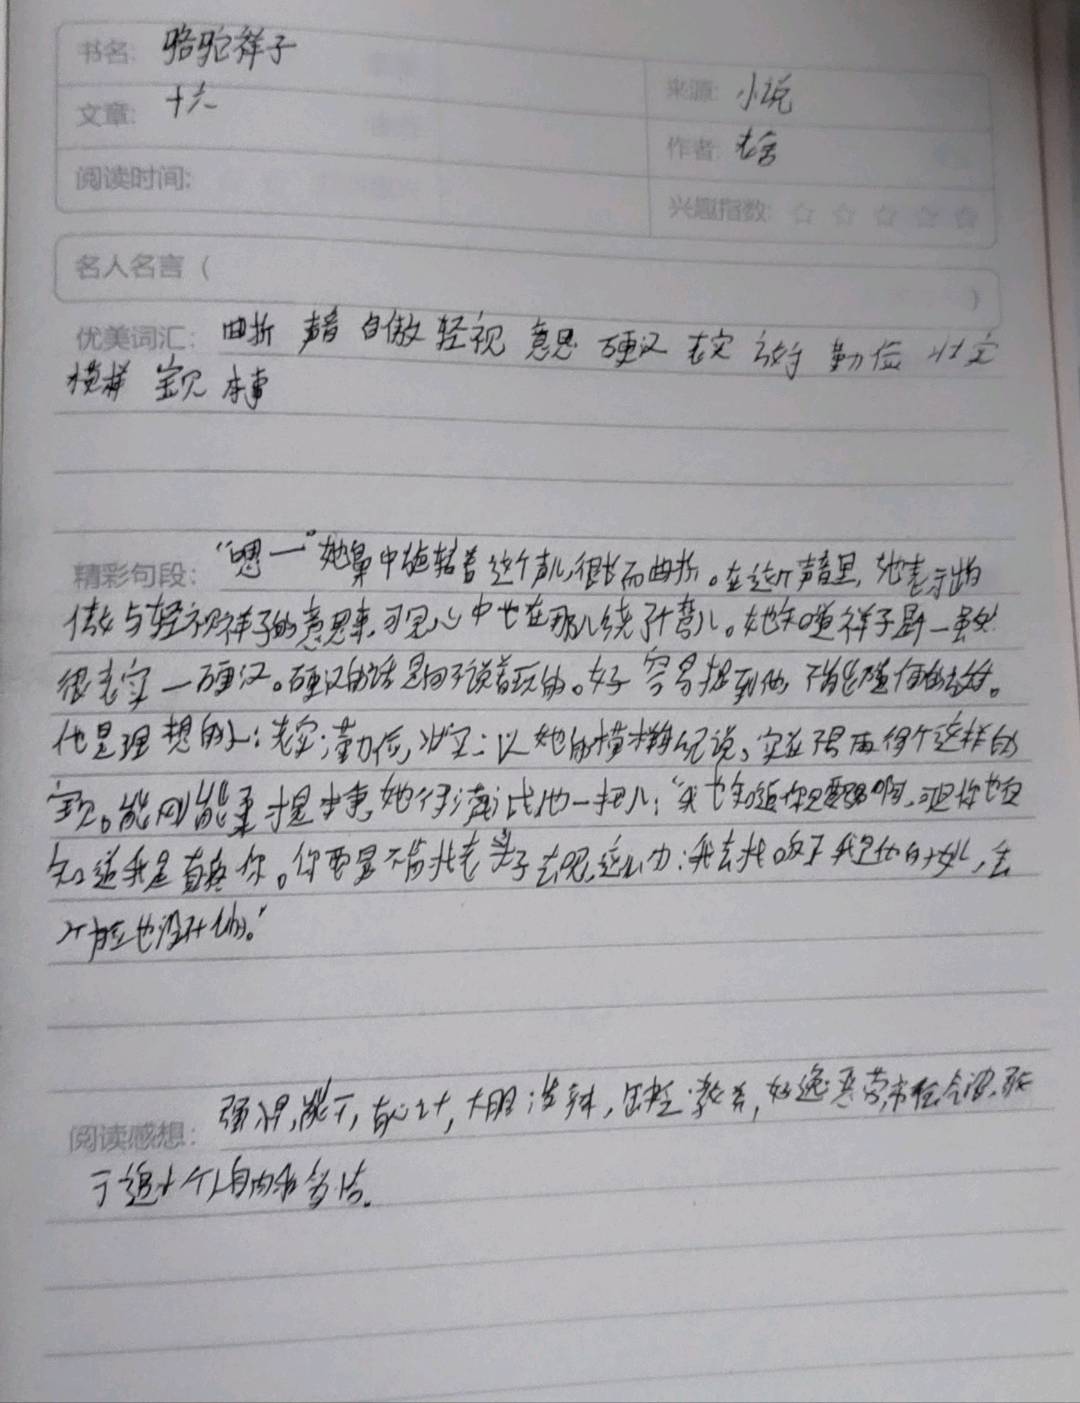 书名: 骆驼祥子
来源: 小说
文章: 十六
作者: 老舍
阅读时间:
兴趣指数: ☆ ☆ ☆ ☆ ☆
名人名言 ( )
优美词汇: 曲折 声音 自傲 轻视 意思 硬汉 老实 放手 勤俭 壮实
模样 宝贝 本事
精彩句段: “嗯—”她鼻中旋转着这个声儿,很长而曲折。在这个声音里,她表示出
傲与轻视祥子的意思来,可见心中也在那儿绕了个弯儿。她知道祥子是一
很老实 一硬汉。硬汉的话是向不说着玩的。好容易捉到他,不能随便的放手。
他是理想的人:老实,勤俭,壮实;以她的模样年纪说,实在不易再得个这样的
宝贝。能刚能柔才是本事,她得 他一把儿:“我也知道你是要强啊,可是你也
知道我是真疼你。你要是不肯找老头子去呢,这么办:我去找 我是他的女儿,丢
个脸也没什么的。”
阅读感想: 强悍,能干,有心计,大胆泼辣,出 ,好逸恶劳 ,敢
于追求个人自由和生活。